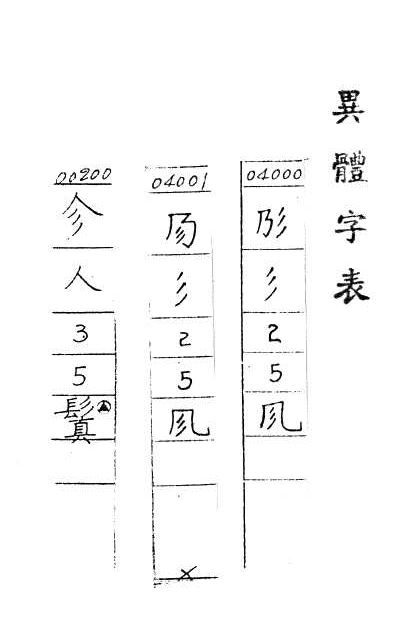 異體字表
04000
彡
2
5
04001
彡
2
5
×
00200
㐱
人
3
5
鬒